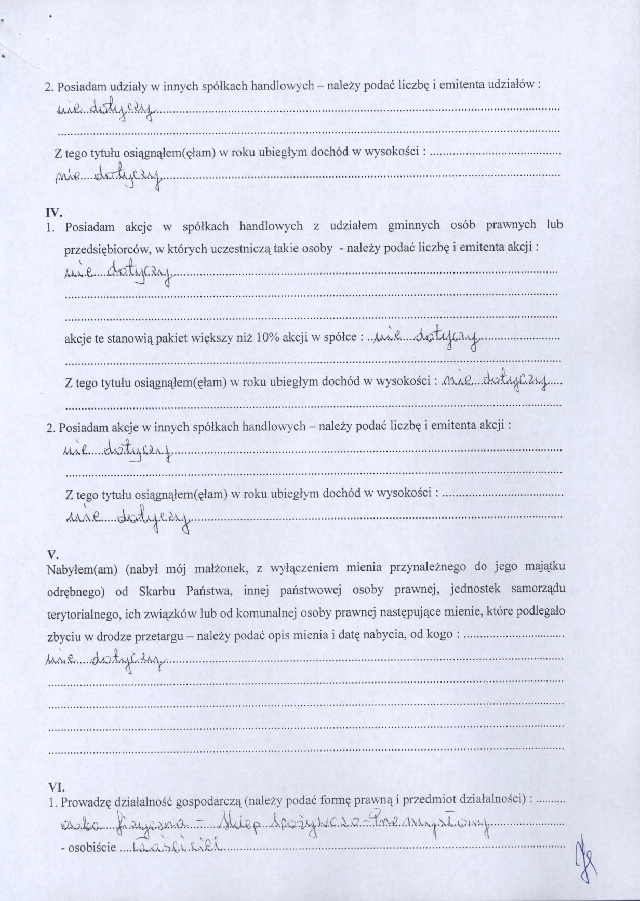 2. Posiadam udziały w innych spółkach handlowych – należy podać liczbę i emitenta udziałów :
nie dotyczy
Z tego tytułu osiągnąłem(ęłam) w roku ubiegłym dochód w wysokości :
nie dotyczy
IV.
1. Posiadam akcje w spółkach handlowych z udziałem gminnych osób prawnych lub
przedsiębiorców, w których uczestniczą takie osoby - należy podać liczbę i emitenta akcji :
nie dotyczy
akcje te stanowią pakiet większy niż 10% akcji w spółce : nie dotyczy
Z tego tytułu osiągnąłem(ęłam) w roku ubiegłym dochód w wysokości : nie dotyczy
2. Posiadam akcje w innych spółkach handlowych – należy podać liczbę i emitenta akcji :
nie dotyczy
Z tego tytułu osiągnąłem(ęłam) w roku ubiegłym dochód w wysokości :
nie dotyczy
V.
Nabyłem(am) (nabył mój małżonek, z wyłączeniem mienia przynależnego do jego majątku
odrębnego) od Skarbu Państwa, innej państwowej osoby prawnej, jednostek samorządu
terytorialnego, ich związków lub od komunalnej osoby prawnej następujące mienie, które podlegało
zbyciu w drodze przetargu – należy podać opis mienia i datę nabycia, od kogo :
nie dotyczy
VI.
1. Prowadzę działalność gospodarczą (należy podać formę prawną i przedmiot działalności) :
osoba fizyczna - Sklep Spożywczo-Przemysłowy
- osobiście właściciel